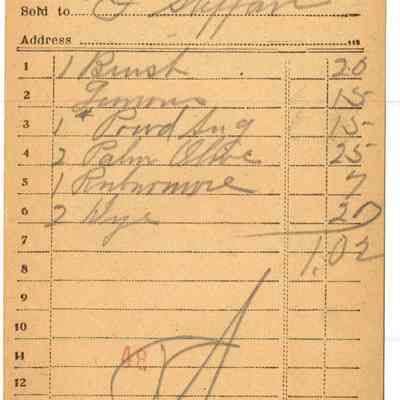 Sold to
Address
1 1 Brush 20
2 Lemons 15
3 1 # Powd Sug 15
4 2 Palm Olive 25
5 1 7
6 2 Dye 20
7 1.02
8
9
10
11 48
12